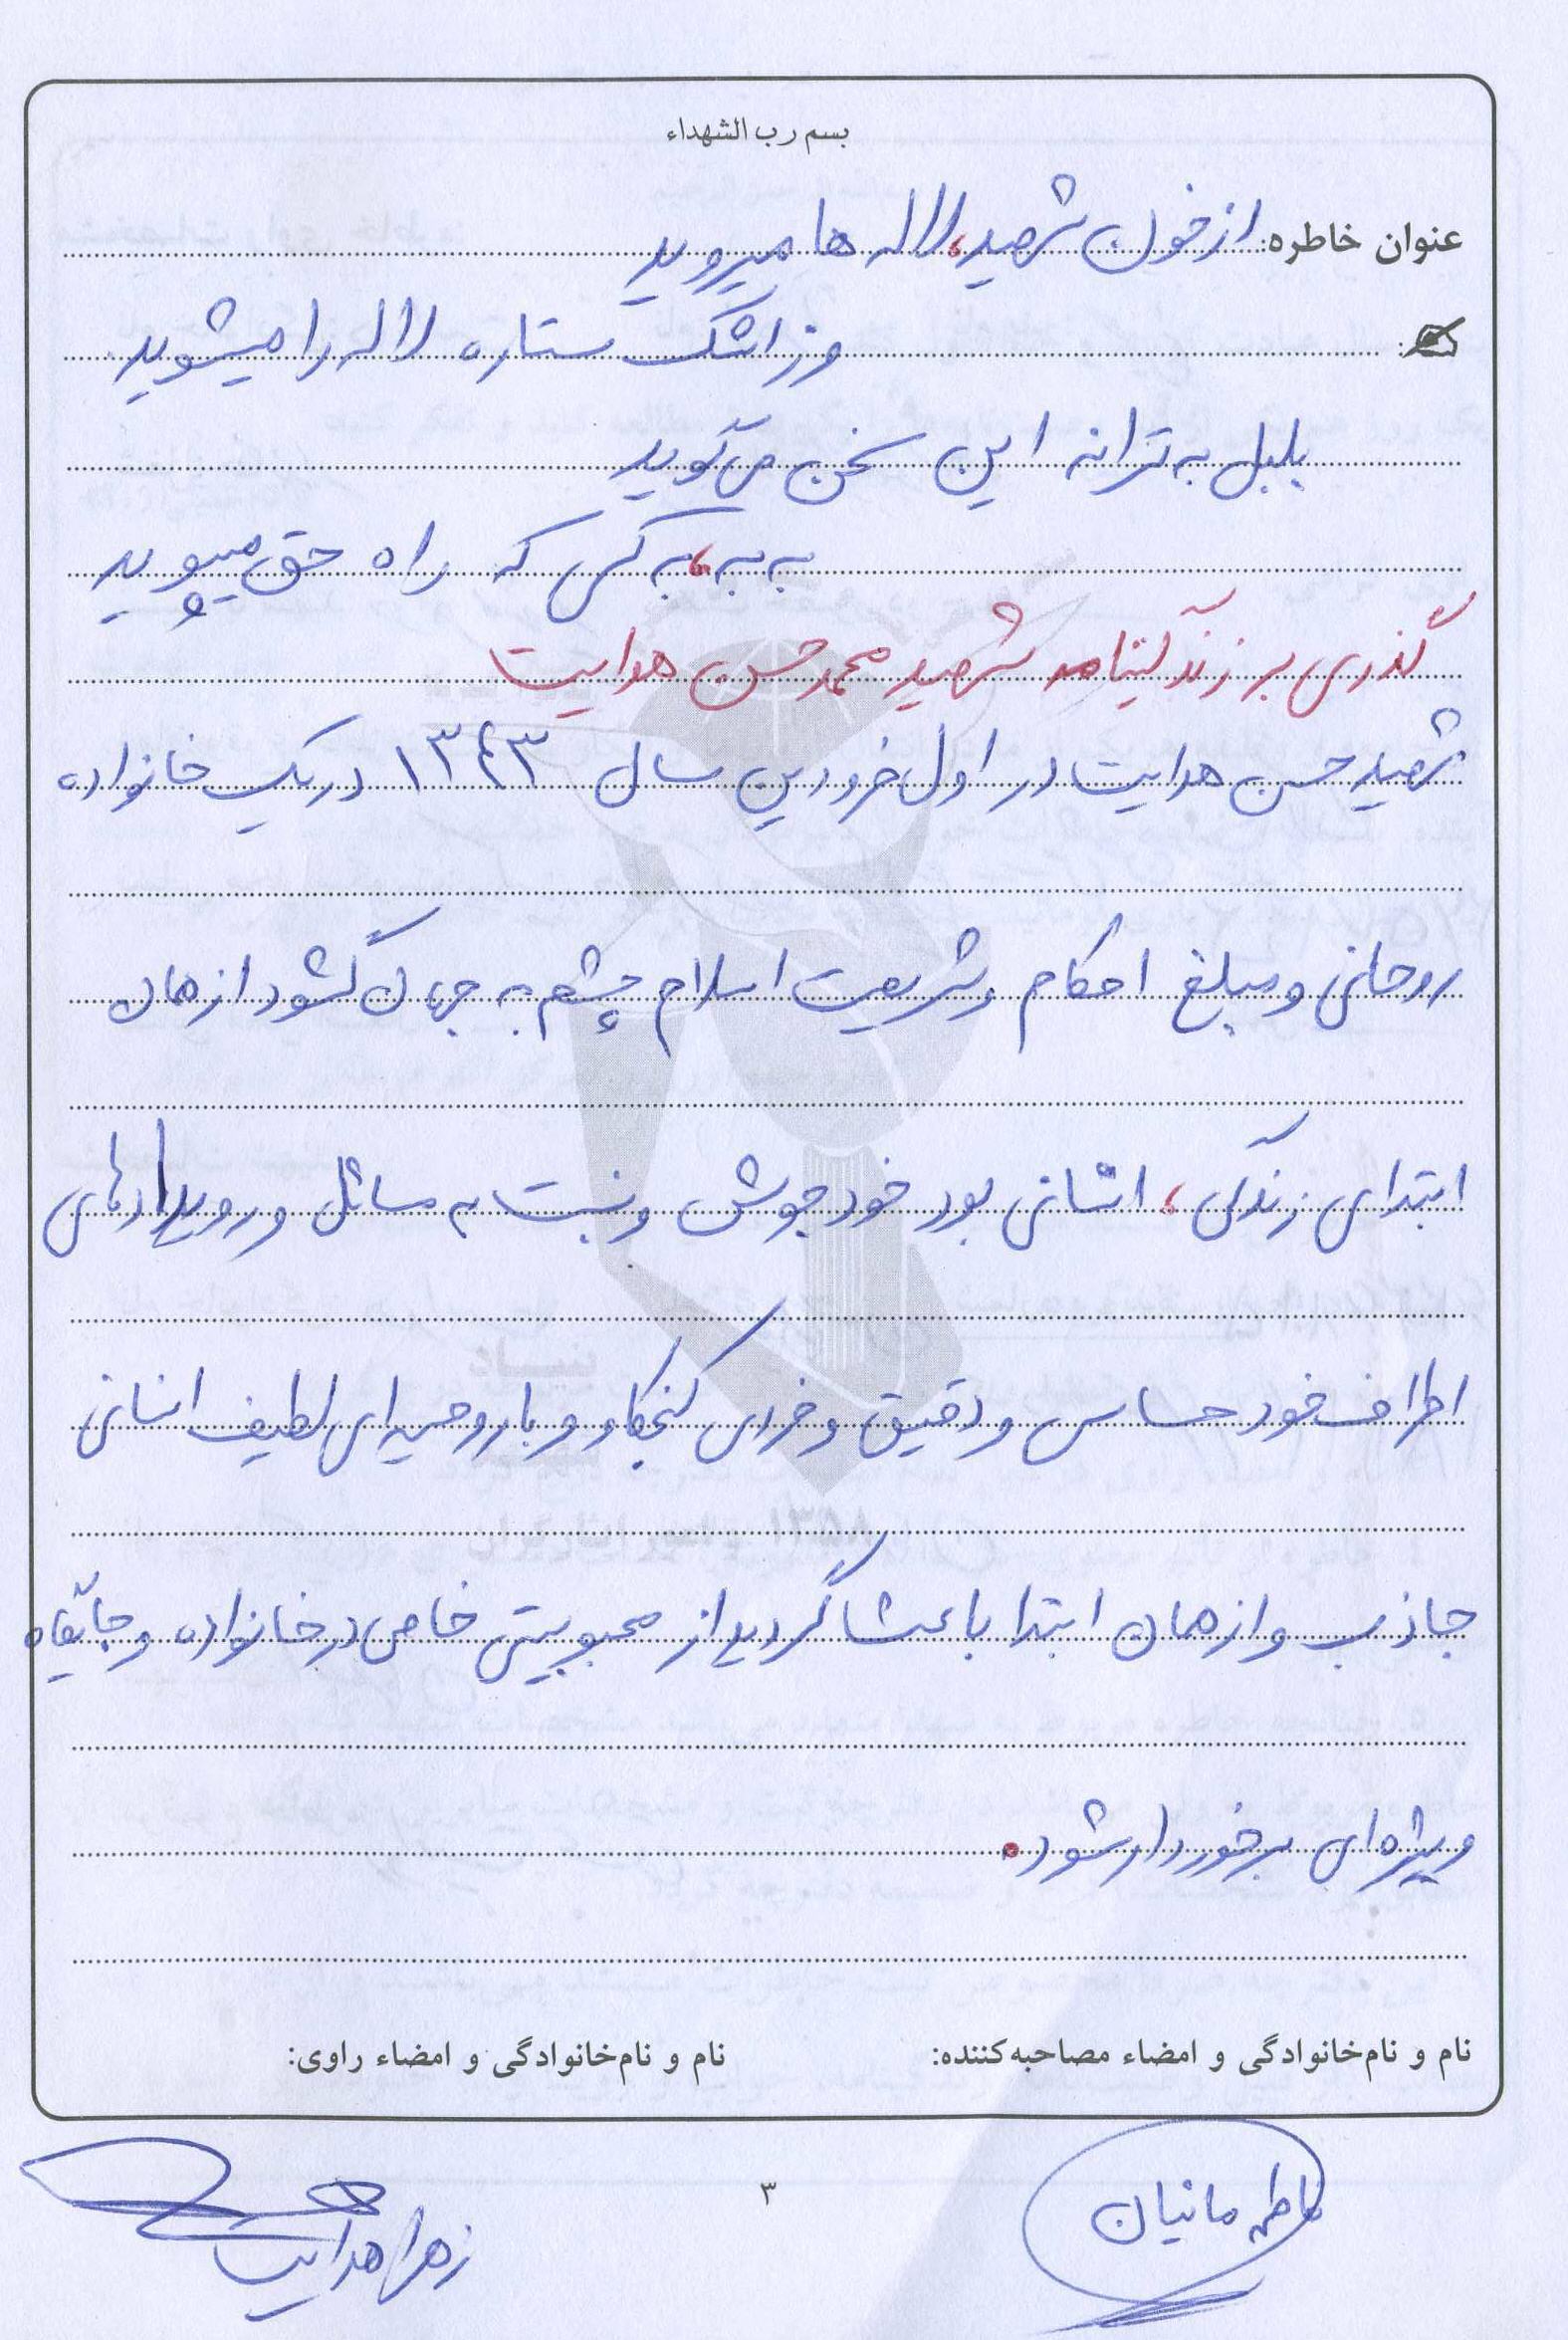 بسم رب الشهداء
عنوان خاطره: از خون شهید، لاله ها میروید
وز اشک ستاره لاله را میشوید
بلبل به ترانه این سخن می گوید
به به، به کسی که راه حق میپوید
گذری بر زندگینامه شهید محمد حسن هدایت
شهید حسن هدایت در اول فروردین سال ۱۳۴۳ در یک خانواده
روحانی و مبلغ احکام و شریعت اسلام چشم به جهان گشود از همان
ابتدای زندگی، انسانی بود خودجوش و نسبت به مسائل و رویدادهای
اطراف خود حساس و دقیق و فردی کنجکاو و با روحیه ای لطیف انسانی
جاذب و از همان ابتدا باعث گردید از محبوبیتی خاص در خانواده و جایگاه
ویژه ای برخوردار شود.
نام و نام‌خانوادگی و امضاء مصاحبه‌کننده:
نام و نام‌خانوادگی و امضاء راوی:
فاطمه مانیان
زهرا هدایت
۳